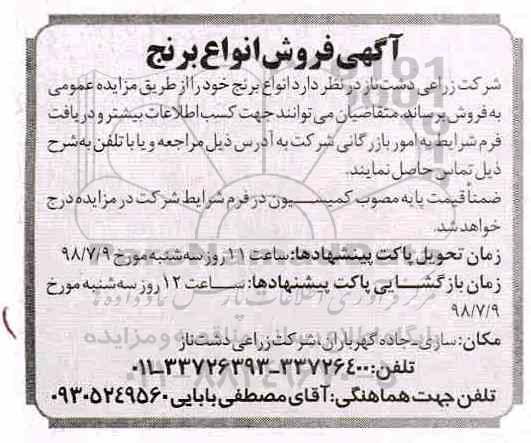 آگهی فروش انواع برنج
شرکت زراعی دشت ناز در نظر دارد انواع برنج خود را از طریق مزایده عمومی
به فروش برساند. متقاضیان می توانند جهت کسب اطلاعات بیشتر و دریافت
فرم شرایط به امور بازرگانی شرکت به آدرس ذیل مراجعه و یا با تلفن به شرح
ذیل تماس حاصل نمایند.
ضمناً قیمت پایه مصوب کمیسیون در فرم شرایط شرکت در مزایده درج
خواهد شد.
زمان تحویل پاکت پیشنهادها: ساعت ۱۱ روز سه شنبه مورخ ۹۸/۷/۹
زمان بازگشایی پاکت پیشنهادها: ساعت ۱۲ روز سه شنبه مورخ
۹۸/۷/۹
مکان: ساری_جاده گهرباران، شرکت زراعی دشت ناز
تلفن: ۳۳۷۲۶۴۰۰-۳۳۷۲۶۳۹۳-۰۱۱
تلفن جهت هماهنگی: آقای مصطفی بابایی ۰۹۳۰۵۲۴۹۵۶۰